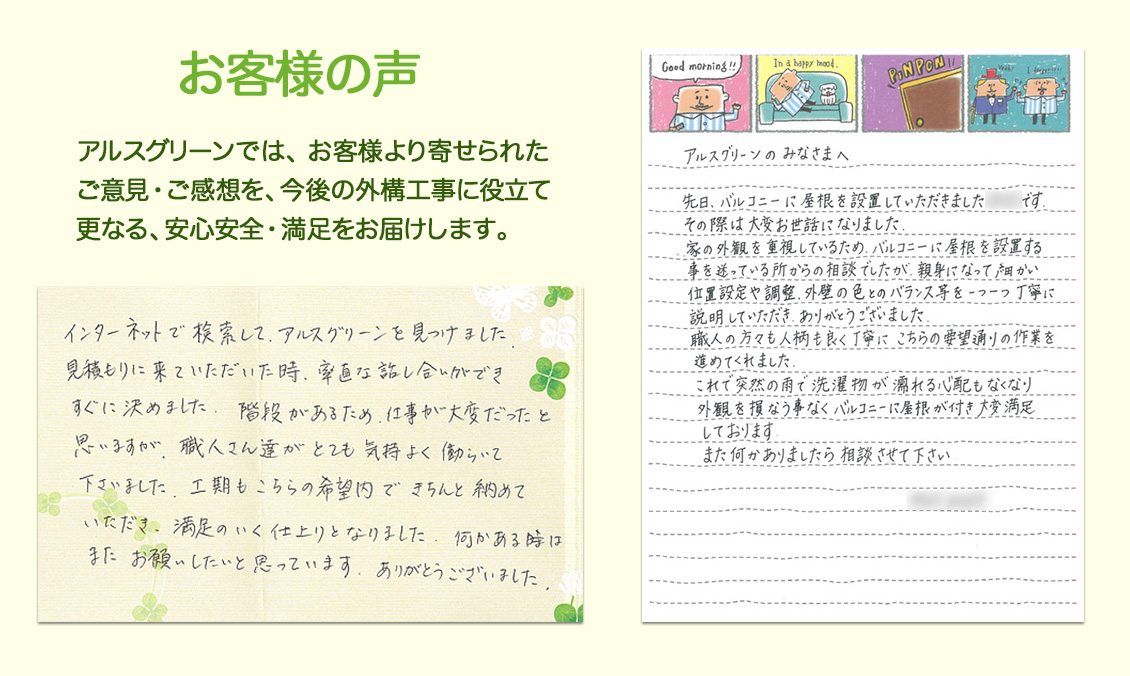 お客様の声
アルスグリーンでは、お客様より寄せられた
ご意見・ご感想を、今後の外構工事に役立て
更なる、安心安全・満足をお届けします。
インターネットで検索して、アルスグリーンを見つけました。
見積もりに来ていただいた時、率直な話し合いができ
すぐに決めました。階段があるため、仕事が大変だったと
思いますが、職人さん達がとても気持よく働らいて
下さいました。工期もこちらの希望内できちんと納めて
いただき、満足のいく仕上りとなりました。何かある時は
また お願いしたいと思っています。ありがとうございました。
Good morning!!
In a happy mood.
PiNPON!!
アルスグリーンのみなさまへ
先日、バルコニーに屋根を設置していただきました です。
その際は大変お世話になりました。
家の外観を重視しているため、バルコニーに屋根を設置する
事を迷っている所からの相談でしたが、親身になって細かい
位置設定や調整、外壁の色とのバランス等を一つ一つ丁寧に
説明していただき、ありがとうございました。
職人の方々も人柄も良く丁寧に こちらの要望通りの作業を
進めてくれました。
これで突然の雨で洗濯物が濡れる心配もなくなり
外観を損なう事なくバルコニーに屋根が付き大変満足
しております。
また何かありましたら相談させて下さい